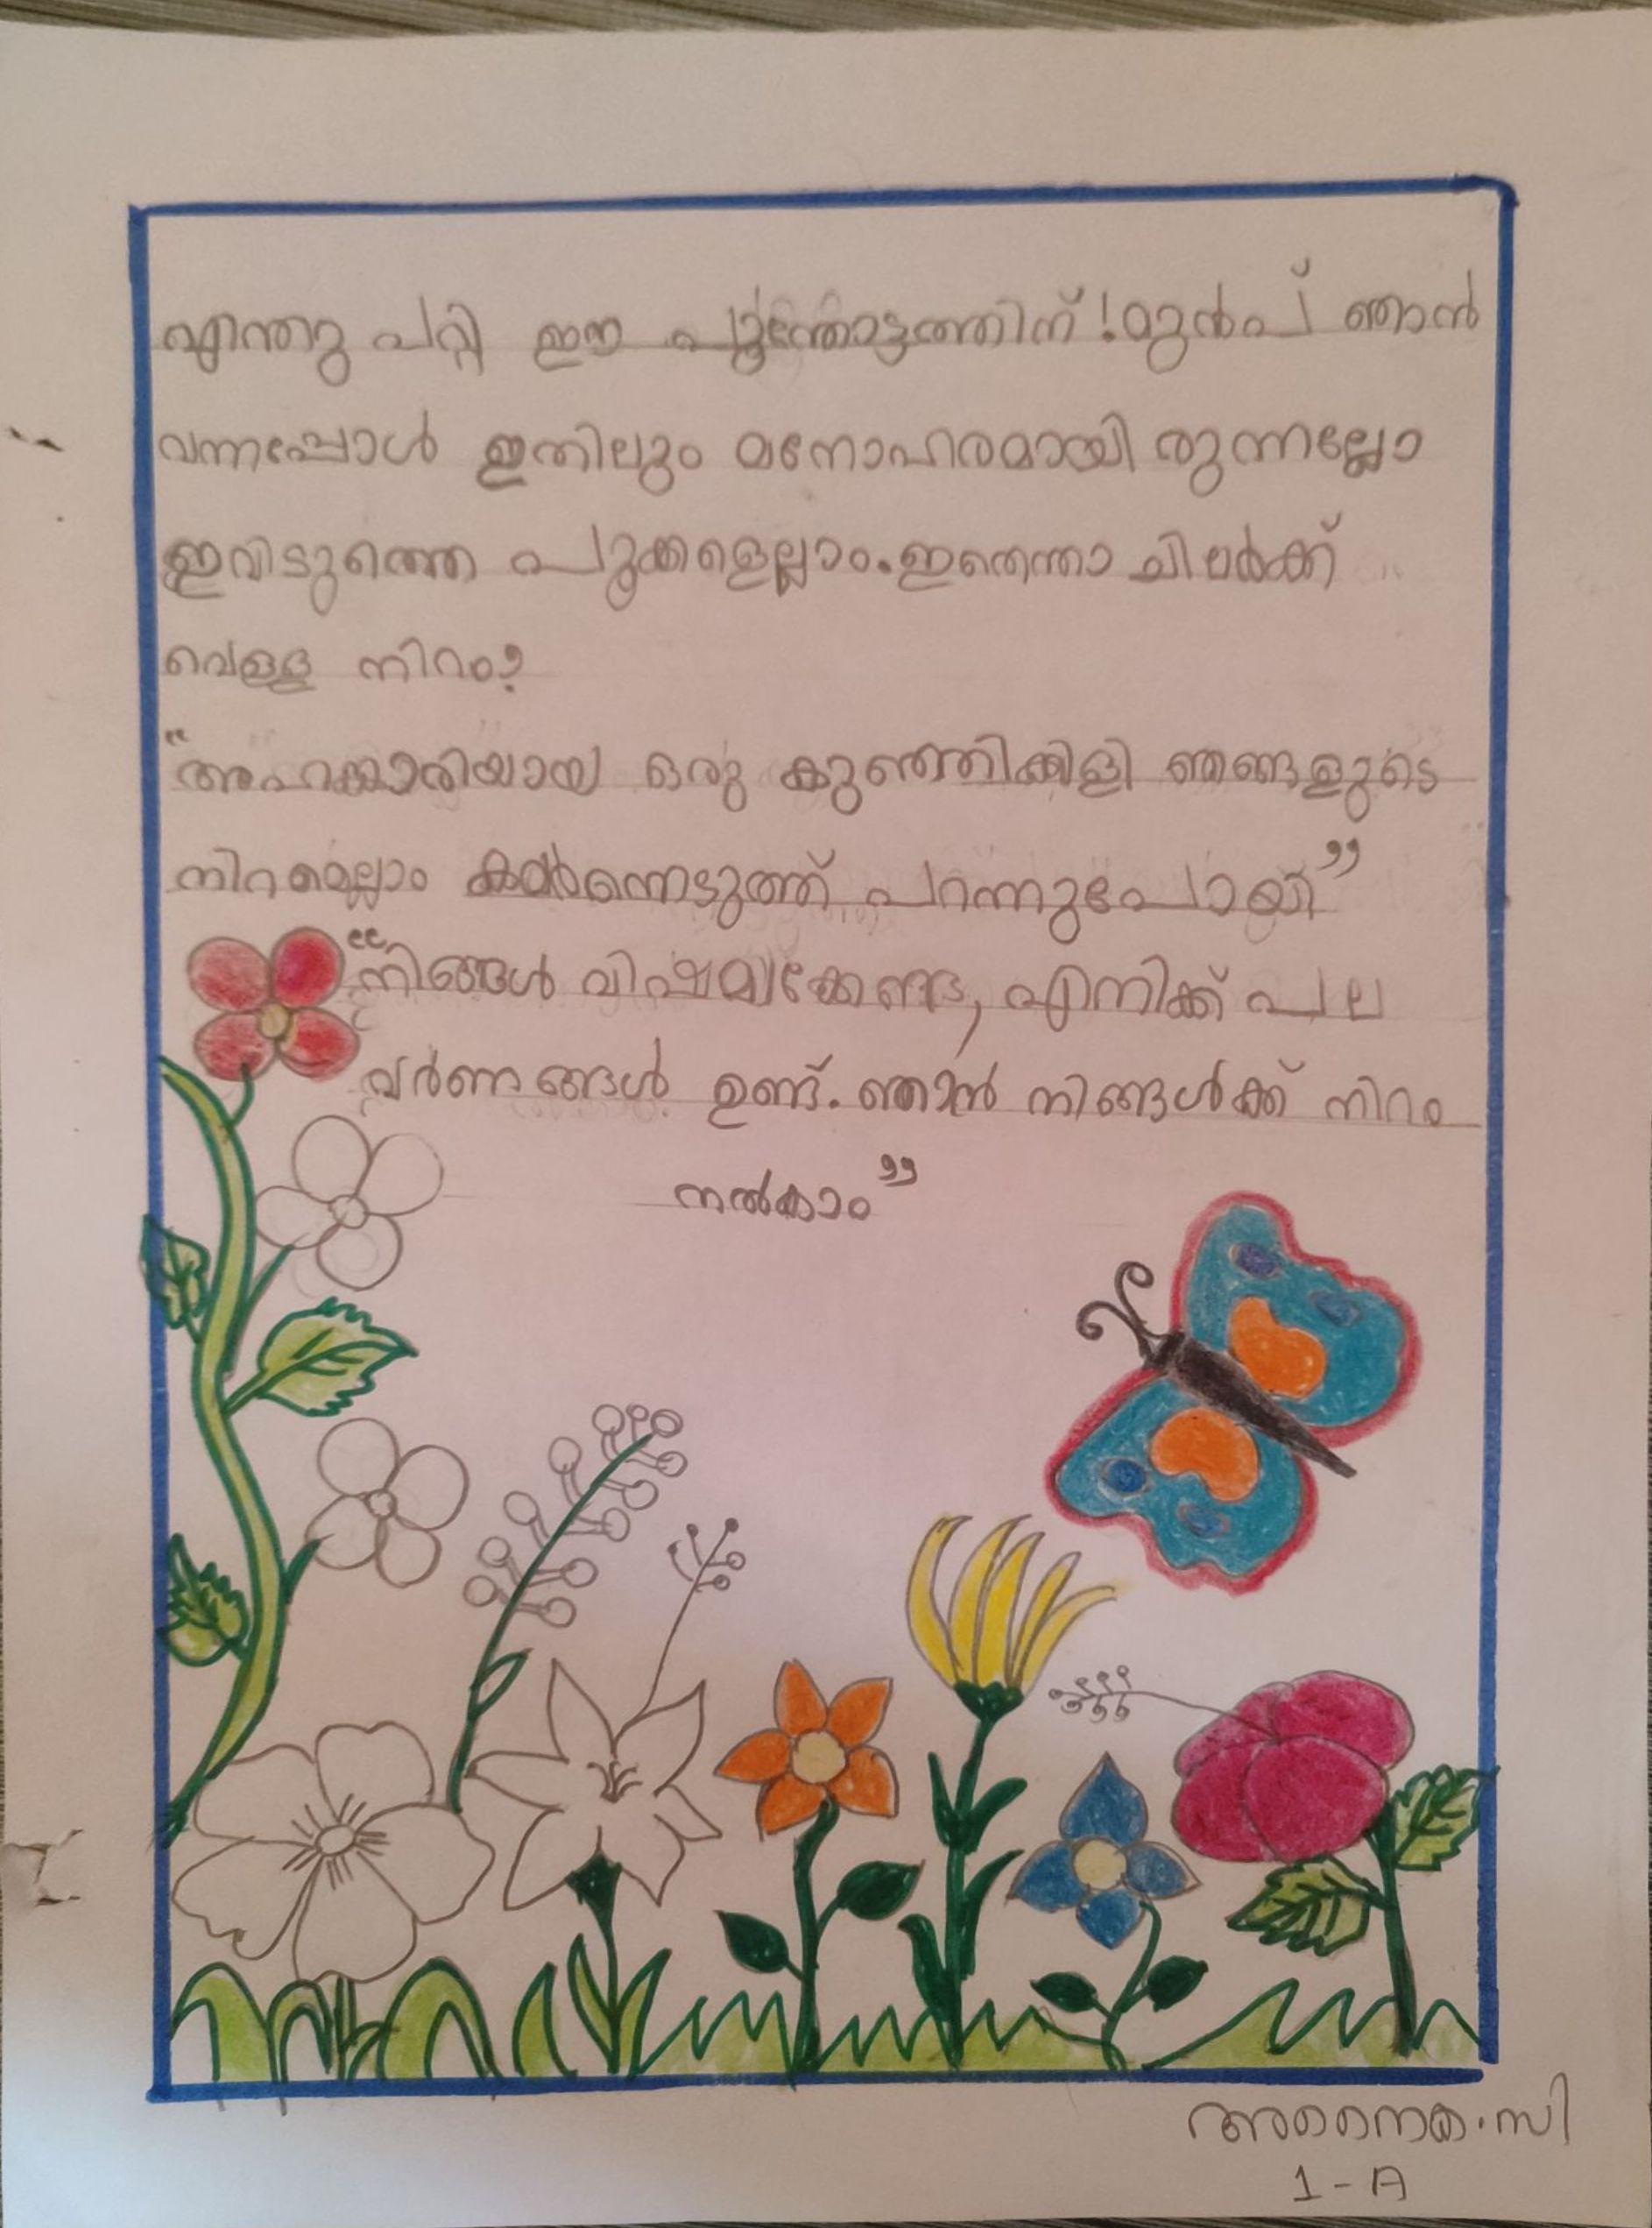 എന്തു പറ്റി ഈ പൂന്തോട്ടത്തിന്! മുൻപ് ഞാൻ
വന്നപ്പോൾ ഇതിലും മനോഹരമായി രുന്നല്ലോ
ഇവിടുത്തെ പൂക്കളെല്ലാം. ഇതെന്താ ചിലർക്ക്
വെള്ള നിറം?
"അഹങ്കാരിയായ ഒരു കുഞ്ഞിക്കിളി ഞങ്ങളുടെ
നിറമെല്ലാം കവർന്നെടുത്ത് പറന്നുപോയി"
"നിങ്ങൾ വിഷമിക്കേണ്ട, എനിക്ക് പല
വർണങ്ങൾ ഉണ്ട്. ഞാൻ നിങ്ങൾക്ക് നിറം
നൽകാം"
സി
1-A